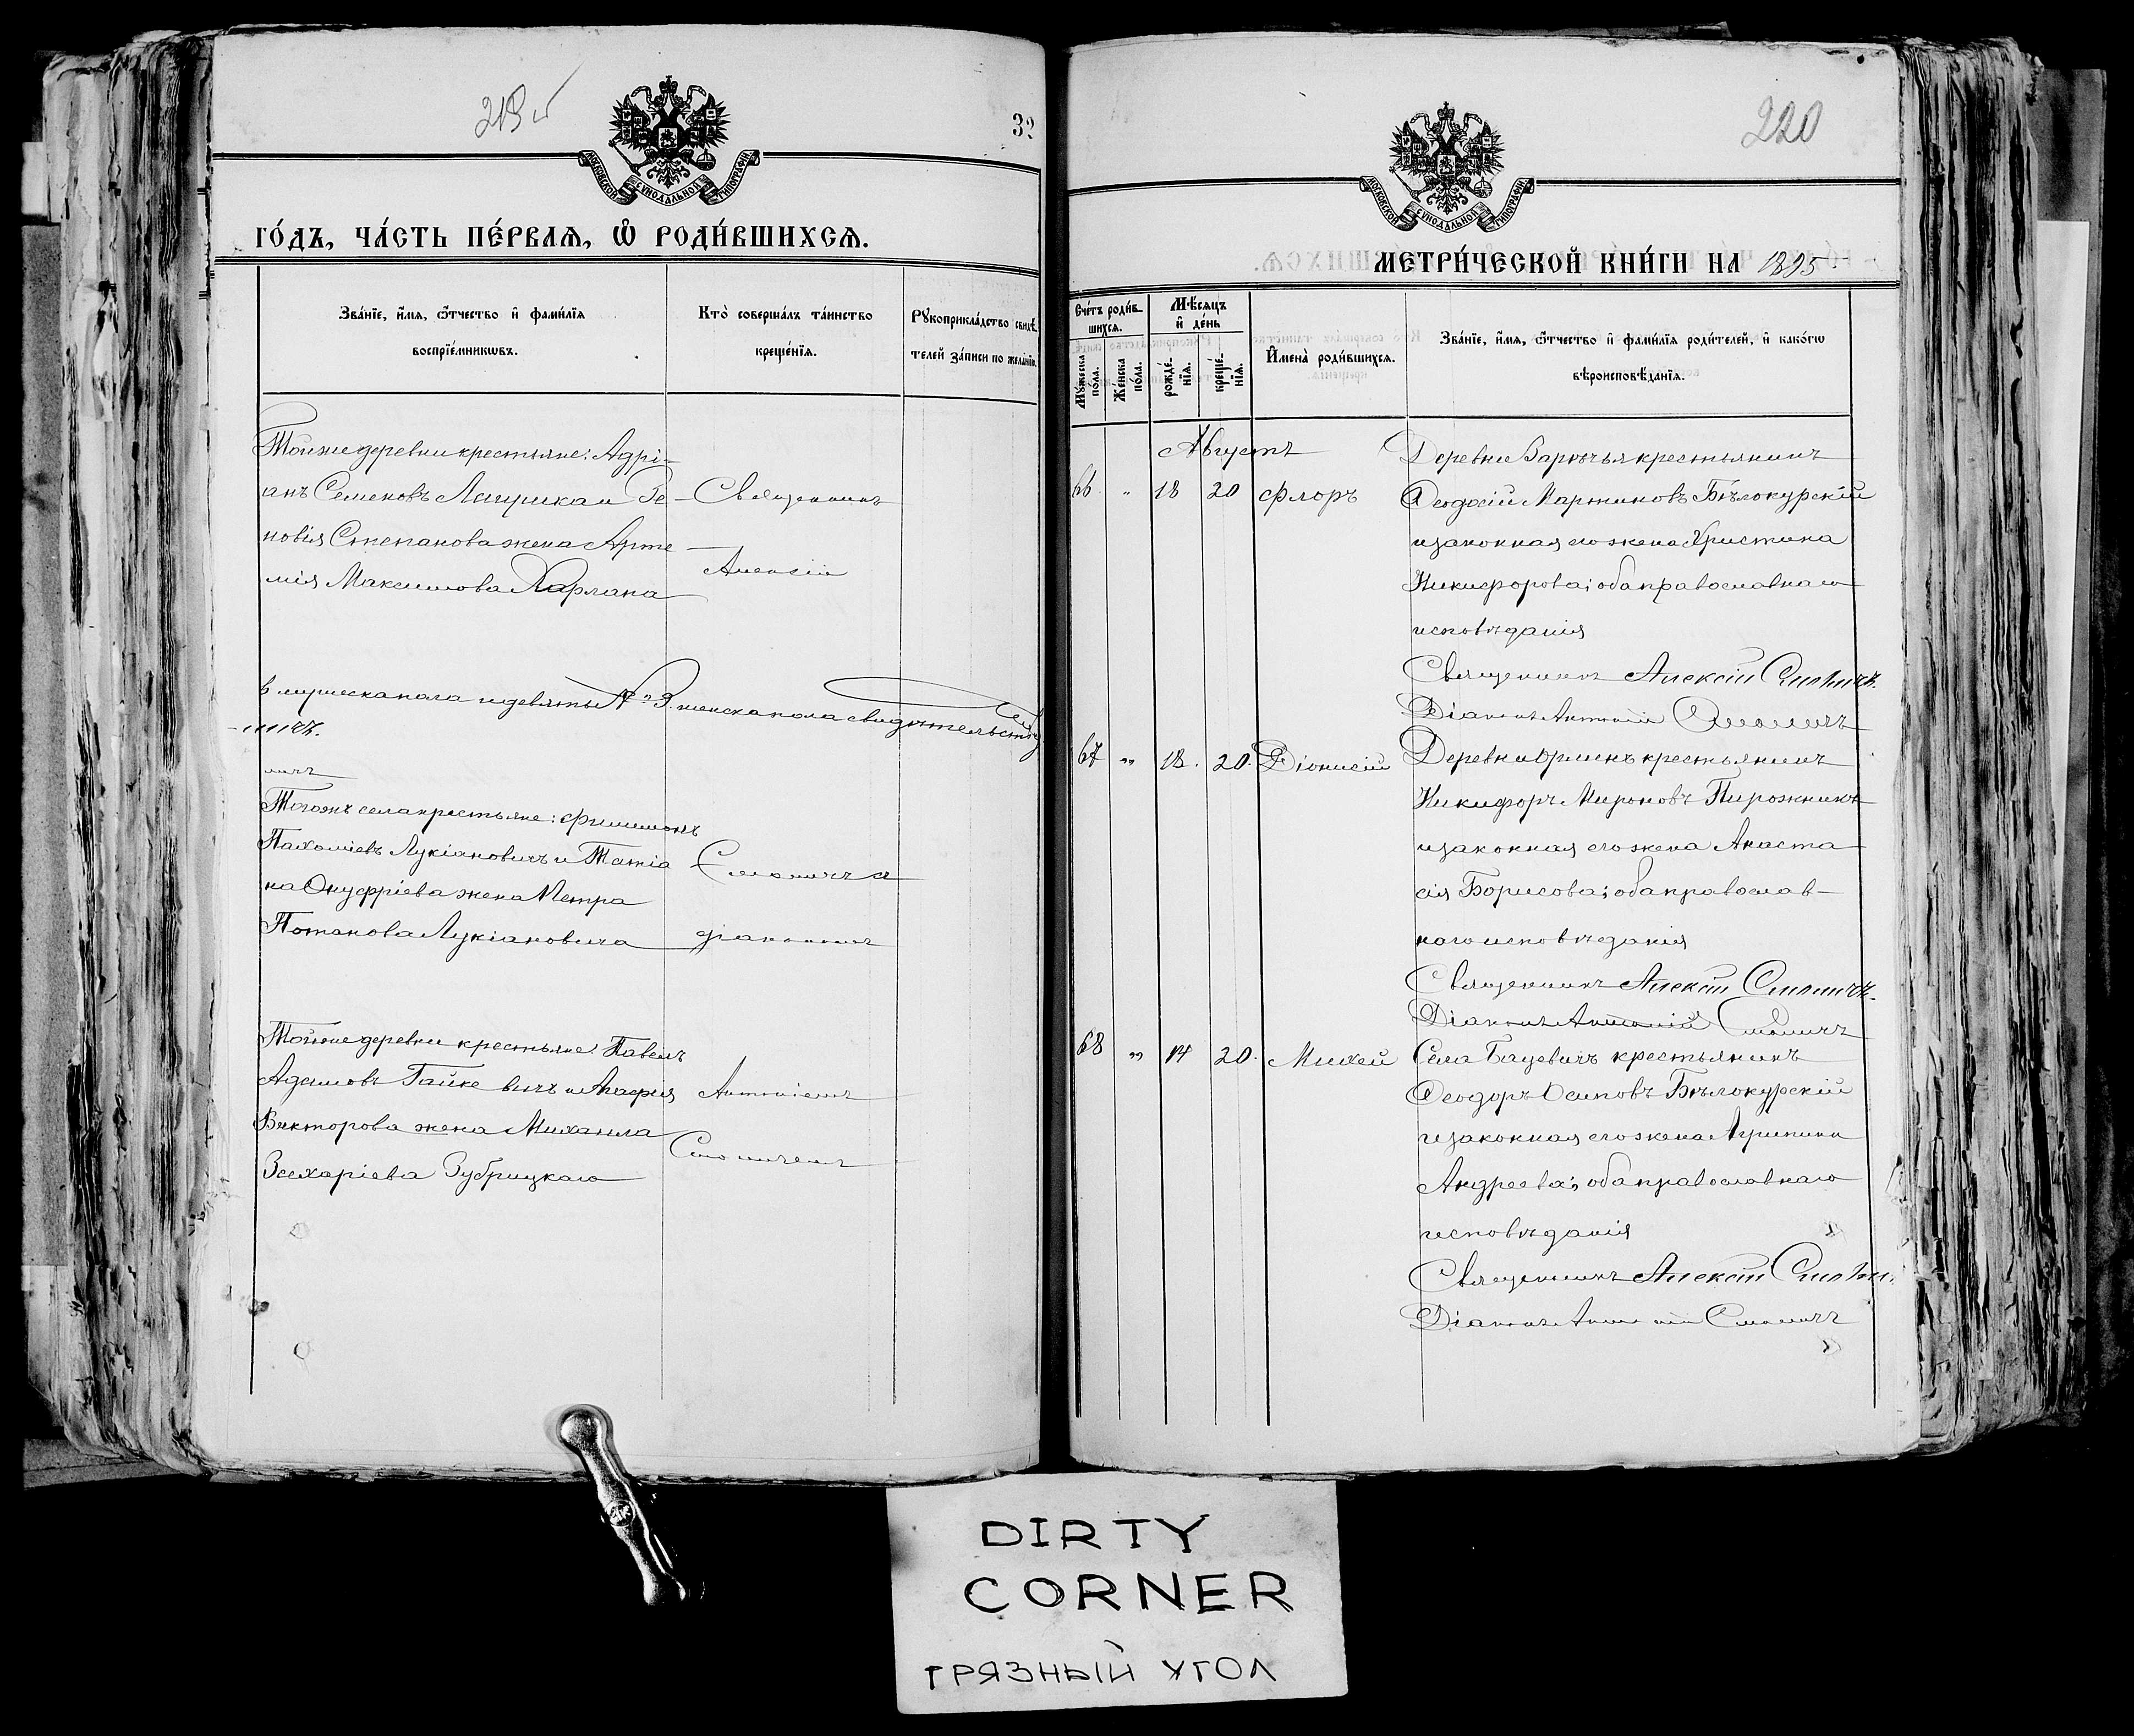 219 об
32
МОСКОВСКОЙ СѴНОДАЛЬНОЙ ТИПОГРАФІИ
ГО́ДЪ, ЧА́СТЬ ПЕ́РВАѦ, Ѽ РОДИ́ВШИХСѦ.
Зва́нїе, и҆́мѧ, ѻ҆́тчество и҆ фами́лїѧ
воспрїе́мникѡвъ.
Кто̀ соверша́лъ та́инство
креще́нїѧ.
Рꙋкоприкла́дство свидѣ́-
телей за́писи по жела́нїю.
Той же деревни крестьяне: Адрі-
анъ Семеновъ
новія Степанова жена Арте-
мія Максимова Харлана
Священникъ
Алексій
№ 3. женска пола свидѣтельству
Того жъ села крестьяне: Филимонъ
Пахоміевъ Лукіановичъ и Татіа
на Онуфріева жена Петра
Потапова Лукіановича
Смоличъ съ
діакономъ
Той же деревни крестьяне: Павелъ
Адамовъ Гайкевичъ и Агафія
Викторова жена Михаила
Захаріева Зубрицкаго
Антоніемъ
Смоличемъ
220
МОСКОВСКОЙ СѴНОДАЛЬНОЙ ТИПОГРАФІИ
МЕТРИ́ЧЕСКОЙ КНИ́ГИ НА 1895
Сче́тъ роди́в-
шихсѧ.
Мꙋ́жеска по́ла.
Же́нска по́ла.
Мѣ́сѧцъ
и҆ де́нь
рожде́нїѧ.
креще́нїѧ.
И҆мена̀ роди́вшихсѧ.
Зва́нїе, и҆́мѧ, ѻ҆́тчество и҆ фами́лїѧ роди́телей, и҆ како́гѡ
вѣроисповѣ́данїѧ.
Августъ
66 „ 18 20 Флоръ
Деревни крестьянинъ
Ѳеодосій Мартиновъ Бѣлокурскій
и законная его жена Христина
Никифорова; оба православнаго
исповѣданія
Священникъ Алексій Смоличъ.
Діаконъ Антоній Смоличъ
67 „ 18. 20. Діонисій
Деревни крестьянинъ
Никифоръ Мироновъ Пирожникъ
и законная его жена Анаста-
сія Борисова; оба православ-
наго исповѣданія
Священникъ Алексій Смоличъ.
Діаконъ Антоній Смоличъ
68 „ 14 20. Михей
Села Бацевичъ крестьянинъ
Ѳеодоръ Осиповъ Бѣлокурскій
и законная его жена Агрипина
Андреева; оба православнаго
исповѣданія
Священникъ Алексій Смоличъ
Діаконъ Антоній Смоличъ
DIRTY
CORNER
ГРЯЗНЫЙ УГОЛ